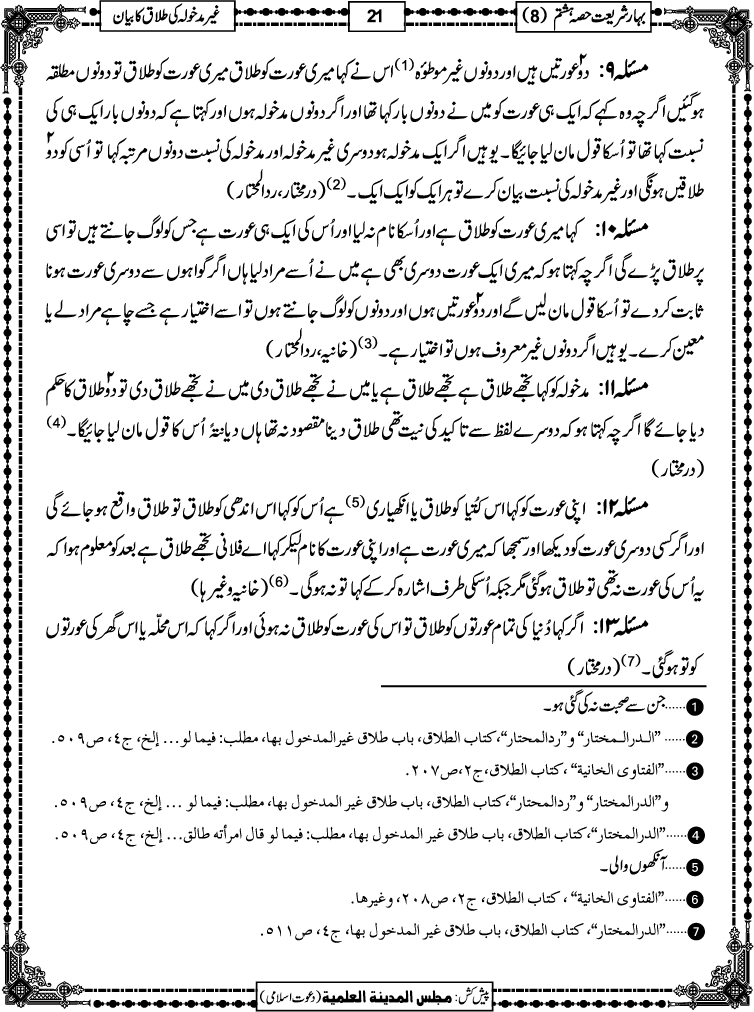 بہار شریعت حصہ ہشتم (8)
21
غیر مدخولہ کی طلاق کا بیان
مسئلہ ۹: دو۲ عورتیں ہیں اور دونوں غیر موطؤہ(1) اس نے کہا میری عورت کو طلاق میری عورت کو طلاق تو دونوں مطلقہ
ہوگئیں اگرچہ وہ کہے کہ ایک ہی عورت کو میں نے دونوں بار کہا تھا اور اگر دونوں مدخولہ ہوں اور کہتا ہے کہ دونوں بار ایک ہی کی
نسبت کہا تھا تو اُسکا قول مان لیا جائیگا۔ یوہیں اگر ایک مدخولہ ہو دوسری غیر مدخولہ اور مدخولہ کی نسبت دونوں مرتبہ کہا تو اُسی کو دو۲
طلاقیں ہونگی اور غیر مدخولہ کی نسبت بیان کرے تو ہر ایک کو ایک ایک۔(2) (درمختار، ردالمحتار)
مسئلہ ۱۰: کہا میری عورت کو طلاق ہے اور اُسکا نام نہ لیا اور اُس کی ایک ہی عورت ہے جس کو لوگ جانتے ہیں تو اسی
پر طلاق پڑے گی اگرچہ کہتا ہو کہ میری ایک عورت دوسری بھی ہے میں نے اُسے مراد لیا ہاں اگر گواہوں سے دوسری عورت ہونا
ثابت کردے تو اُسکا قول مان لیں گے اور دو۲ عورتیں ہوں اور دونوں کو لوگ جانتے ہوں تو اسے اختیار ہے جسے چاہے مراد لے یا
معین کرے۔ یوہیں اگر دونوں غیر معروف ہوں تو اختیار ہے۔(3) (خانیہ، ردالمحتار)
مسئلہ ۱۱: مدخولہ کو کہا تجھے طلاق ہے تجھے طلاق ہے یا میں نے تجھے طلاق دی میں نے تجھے طلاق دی تو دو۲ طلاق کا حکم
دیا جائے گا اگرچہ کہتا ہو کہ دوسرے لفظ سے تاکید کی نیت تھی طلاق دینا مقصود نہ تھا ہاں دیانۃً اُس کا قول مان لیا جائیگا۔(4)
(درمختار)
مسئلہ ۱۲: اپنی عورت کو کہا اس کُتیا کو طلاق یا انکھیاری(5) ہے اُس کو کہا اس اندھی کو طلاق تو طلاق واقع ہو جائے گی
اور اگر کسی دوسری عورت کو دیکھا اور سمجھا کہ میری عورت ہے اور اپنی عورت کا نام لیکر کہا اے فلانی تجھے طلاق ہے بعد کو معلوم ہوا کہ
یہ اُس کی عورت نہ تھی تو طلاق ہوگئی مگر جبکہ اُسکی طرف اشارہ کر کے کہا تو نہ ہوگی۔(6) (خانیہ وغیرہا)
مسئلہ ۱۳: اگر کہا دُنیا کی تمام عورتوں کو طلاق تو اس کی عورت کو طلاق نہ ہوئی اور اگر کہا کہ اس محلّہ یا اس گھر کی عورتوں
کو تو ہوگئی۔(7) (درمختار)
1 ......جن سے صحبت نہ کی گئی ہو۔
2 ......"الدرالمختار" و"ردالمحتار"، كتاب الطلاق، باب طلاق غيرالمدخول بها، مطلب: فيما لو... إلخ، ج٤، ص٥٠٩.
3 ......"الفتاوى الخانية"، كتاب الطلاق، ج٢، ص٢٠٧.
و"الدرالمختار" و"ردالمحتار"، كتاب الطلاق، باب طلاق غير المدخول بها، مطلب: فيما لو ... إلخ، ج٤، ص٥٠٩.
4 ......"الدرالمختار"، كتاب الطلاق، باب طلاق غير المدخول بها، مطلب: فيما لو قال امرأته طالق... إلخ، ج٤، ص٥٠٩.
5 ......آنکھوں والی۔
6 ......"الفتاوى الخانية"، كتاب الطلاق، ج٢، ص٢٠٨، وغيرها.
7 ......"الدرالمختار"، كتاب الطلاق، باب طلاق غير المدخول بها، ج٤، ص٥١١.
پیش کش: مجلس المدينة العلمية (دعوت اسلامی)